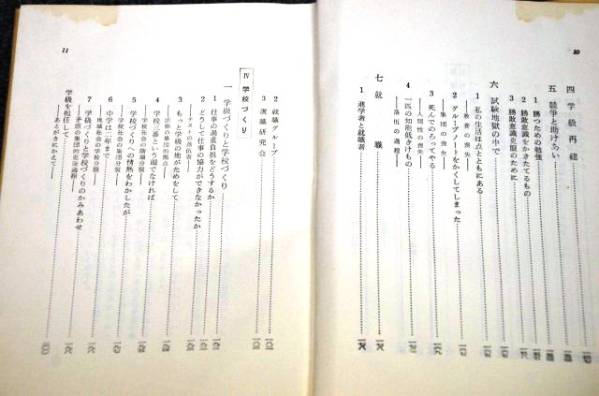 10
四 学級再建
五 競争と助けあい
1 勝つための勉強
2 勝敗意識をかきたてるもの
3 勝敗意識克服のために
六 試験地獄の中で
1 私の生活は点とともにある
――教育の喪失――
2 グループノートをかくしてしまった
――集団の喪失――
3 死んでのろってやる
――人間性の喪失――
4 一匹の知能低きけもの
――落伍の過程――
七 就職
1 進学者と就職者
11
2 就職グループ
3 演劇研究会
Ⅳ 学校づくり
一 学級づくりと学校づくり
1 仕事の過重負担をどうするか
2 どうして仕事の協力ができなかったか
――テストの落伍者――
3 もっと学級の地がためをして
4 学校一番という頭でなければ
――学校社会の階層分裂――
5 学校づくりへの情熱をわかしたが
――学校社会の集団分裂――
6 中学は二年まで
――地域社会の学校分裂――
7 学級づくりと学校づくりのかみあわせ
――矛盾の集団的克服過程――
学級を担任して
――あとがきにかえて――